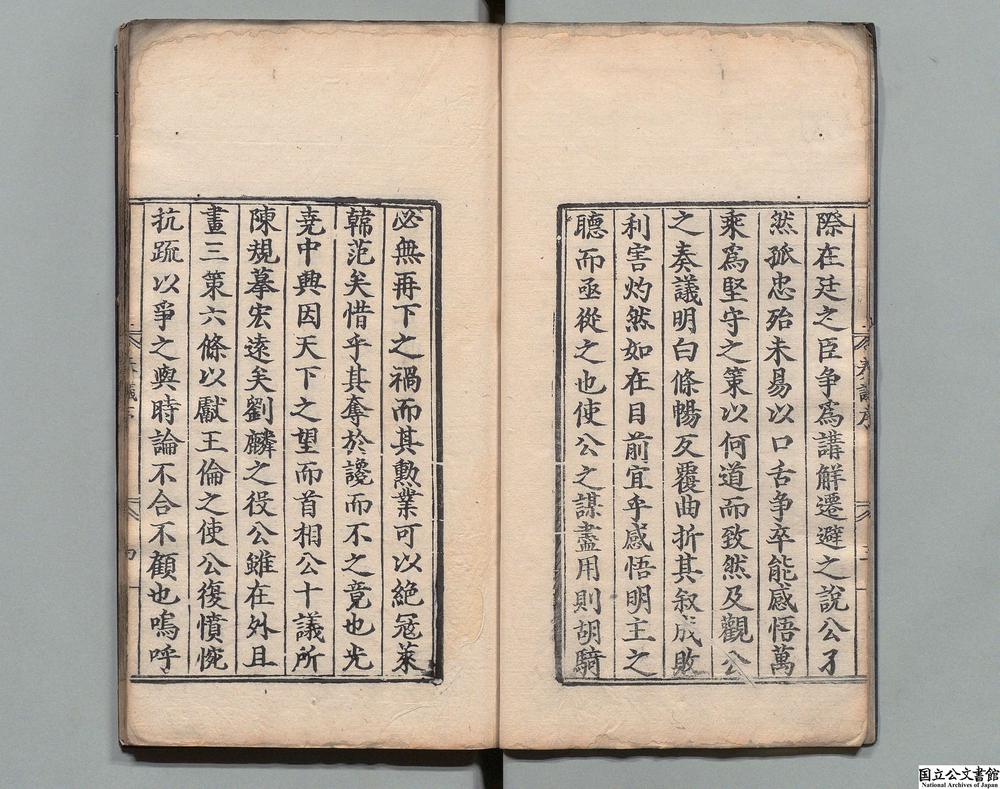 際在廷之臣争爲講解遷避之說公孑
然孤忠殆未易以口舌争卒能感悟萬
乘爲堅守之策以何道而致然及觀公
之奏議明白條暢反覆曲折其叙成敗
利害灼然如在目前宜乎感悟明主之
聽而亟從之也使公之謀盡用則胡騎
必無再下之禍而其勲業可以絶冦萊
韓范矣惜乎其奪於讒而不之竟也光
堯中興因天下之望而首相公十議所
陳規摹宏遠矣劉麟之役公雖在外且
畫三策六條以獻王倫之使公復憤惋
抗疏以爭之與時論不合不顧也嗚呼
奏議序
四
国立公文書館
National Archives of Japan